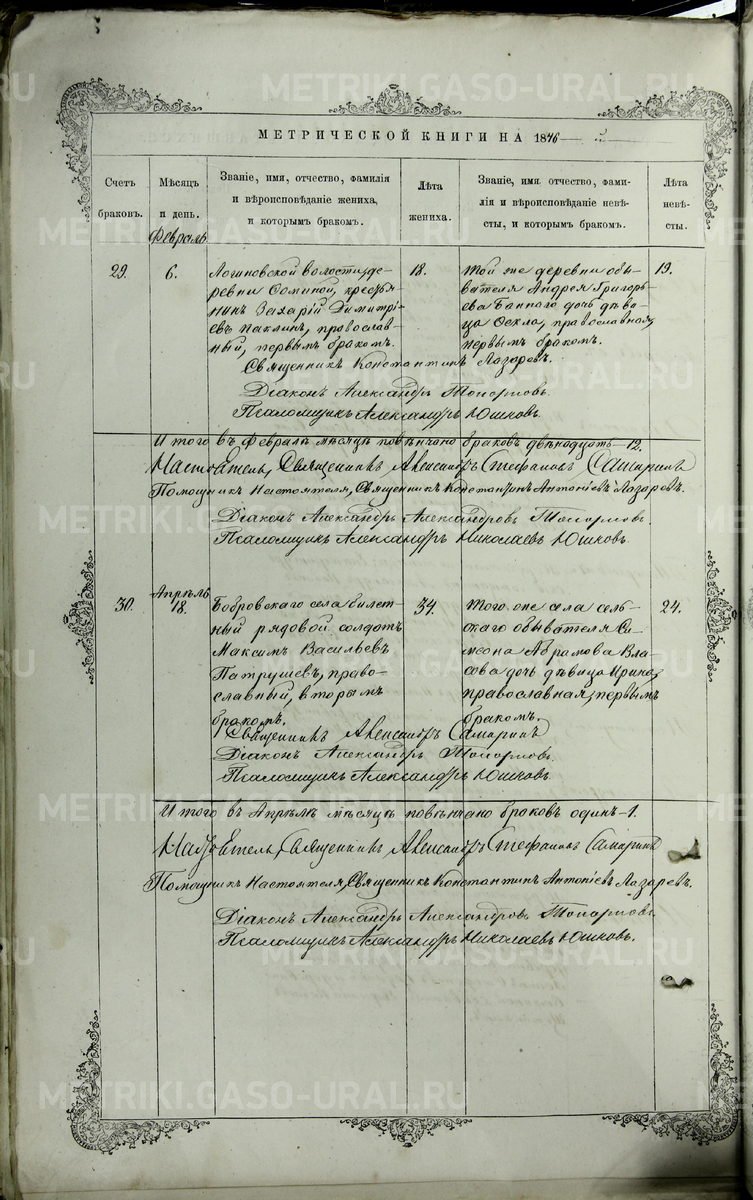 METRIKI.GASO-URAL.RU
МЕТРИЧЕСКОЙ КНИГИ НА 1876
Счетъ браковъ.
Мѣсяцъ и день.
Званіе, имя, отчество, фамилія и вѣроисповѣданіе жениха, и которымъ бракомъ.
Лѣта жениха.
Званіе, имя отчество, фамилія и вѣроисповѣданіе невѣсты, и которымъ бракомъ.
Лѣта невѣсты.
Февраль
29.
6.
Логиновской волости, деревни
ревни Соминой, крестья
нинъ Захарій Димитрі
евъ Паклинъ, православ
ный, первымъ бракомъ.
18.
Той же деревни обы
вателя Андрея Григорь
ева Баннаго дочь дѣви
ца Ѳекла, православная,
первымъ бракомъ.
19.
Священникъ Константинъ Лазаревъ.
Діаконъ Александръ Топорковъ.
Псаломщикъ Александръ Юшковъ.
Итого въ Февралѣ мѣсяцѣ повѣнчано браковъ двѣнадцать - 12.
Настоятель, Священникъ Александръ Стефановъ Самаринъ
Помощникъ Настоятеля, Священникъ Константинъ Антоніевъ Лазаревъ.
Діаконъ Александръ Александровъ Топорковъ.
Псаломщикъ Александръ Николаевъ Юшковъ.
Апрѣль
30.
18.
Бобровскаго села билет
ный рядовой солдатъ
Максимъ Васильевъ
Патрушевъ, право
славный, вторымъ
бракомъ.
34.
Того же села сель
скаго обывателя Си
меона Абрамова Вла
сова дочь дѣвица Ирина,
православная, первымъ
бракомъ.
24.
Священникъ Александръ Самаринъ
Діаконъ Александръ Топорковъ.
Псаломщикъ Александръ Юшковъ
Итого въ Апрѣлѣ мѣсяцѣ повѣнчано браковъ одинъ - 1.
Настоятель, Священникъ Александръ Стефановъ Самаринъ
Помощникъ Настоятеля, Священникъ Константинъ Антоніевъ Лазаревъ.
Діаконъ Александръ Александровъ Топорковъ.
Псаломщикъ Александръ Николаевъ Юшковъ.